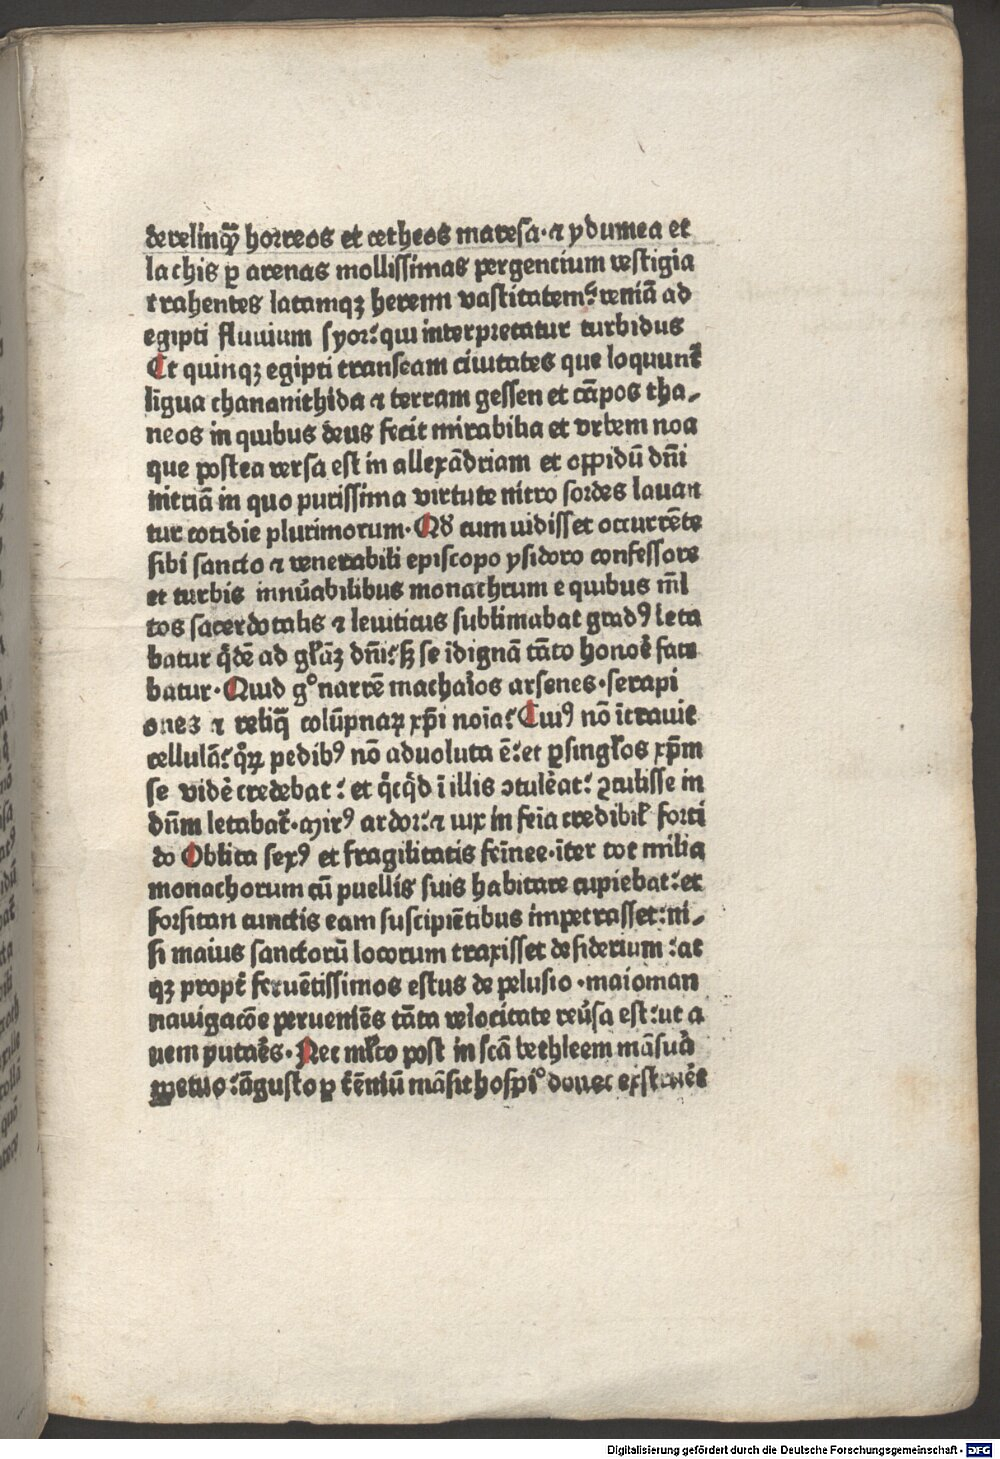 derelinqꝫ horreos et cetheos maresa· ⁊ ydumea et
lachis ꝑ arenas mollissimas pergencium vestigia
trahentes latamqꝫ heremi vastitatem: veniā ad
egipti fluuium syor: qui interpretatur turbidus
Et quinqꝫ egipti transeam ciuitates que loquunt̄
līgua chananithida ⁊ terram gessen et cāpos tha⸗
neos in quibus deus fecit mirabilia et vrbem noa
que postea versa est in allexādriam et oppidū dn̄i
nitriā in quo purissima virtute nitro sordes lauan
tur cotidie plurimorum· Qd̄ cum uidisset occurrēte
sibi sancto ⁊ venerabili episcopo ysidoro confessore
et turbis innūabilibus monachrum e quibus ml̄
tos sacerdotalis ⁊ leuiticus sublimabat gradꝰ leta
batur q̄dē ad glāꝫ dn̄i: sꝫ se īdignā tāto honoē fate
batur· Quid gͦ narrē machaīos arsenes· serapi
ones ⁊ reliq̄ colūpnaꝝ xp̄i noīa: Cuiꝰ nō īt̄rauit
cellulā: q̄ꝝ pedibꝰ nō aduoluta ē: et ꝑ singl̄os xp̄m
se vidē credebat: et q̄cq̄d ī illis ↄtulēat: ↄtulisse in
dūm letabat̄· Mirꝰ ardor: ⁊ uix in feīa credibil̄ forti
do Oblita sexꝰ et fragilitatis feīnee· īter tot milia
monachorum cū puellis suis habitare cupiebat: et
forsitan cunctis eam suscipiētibus impetrasset: ni⸗
si maius sanctorū locorum traxisset desiderium: at
qꝫ propt̄ feruētissimos estus de pelusio· maioman
nauigacōe perueniēs tāta velocitate reūsa est: ut a
uem putaēs· Nec ml̄to post in scā bethleem māsuā
ꝑpetuo: āgusto ꝑ t̄ēniū māsit hospiͦ donec exstruēt
Digitalisierung gefördert durch die Deutsche Forschungsgemeinschaft - DFG